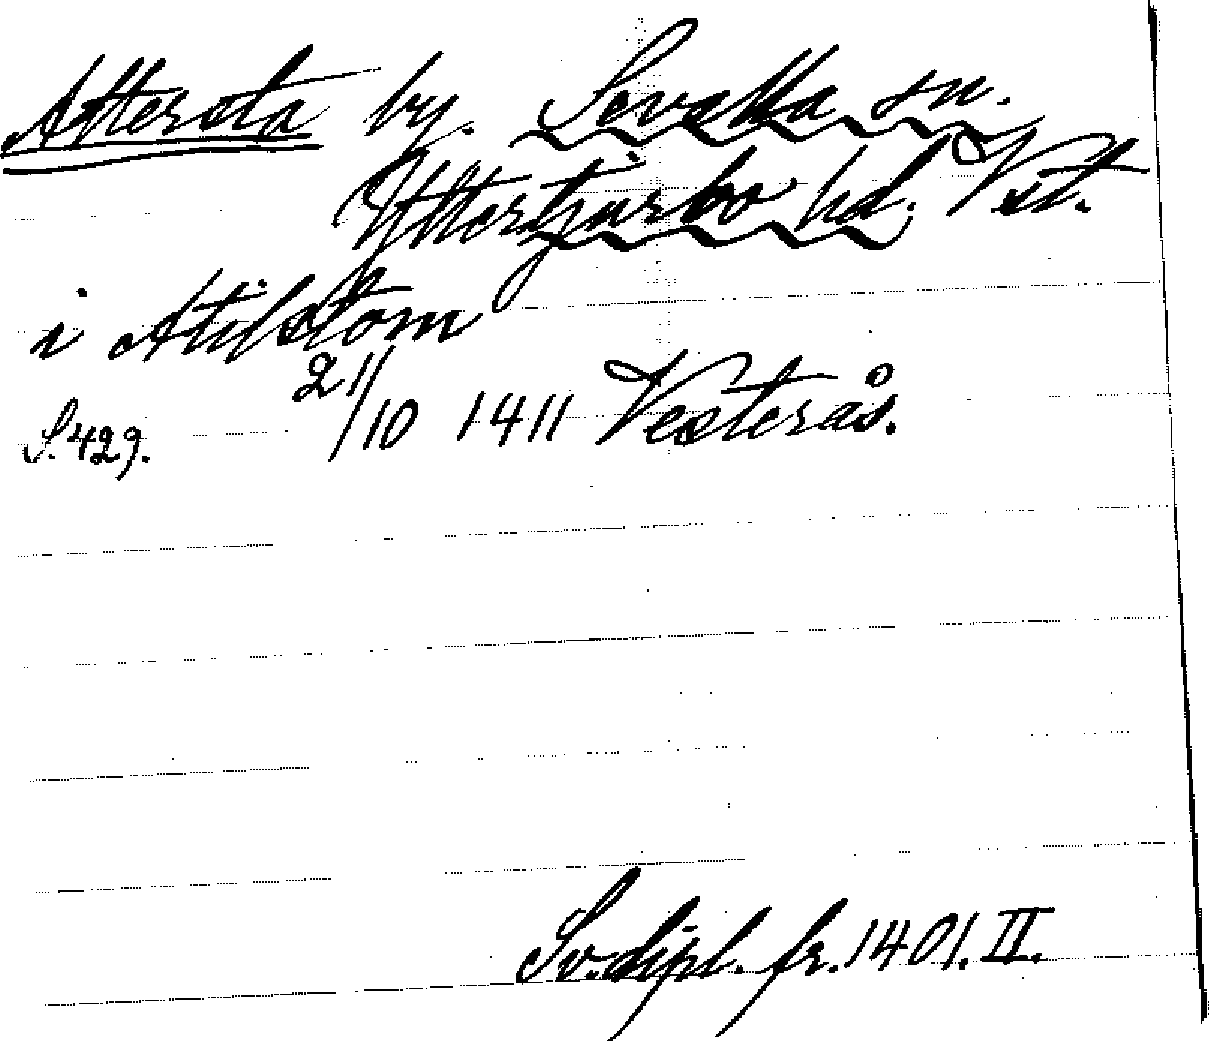 Attersta by. Sevalla sn.
Yttertjurbo hd. Vst.
i Atilstom
S. 429. 21/10 1411 Vesterås.
Sv. dipl. fr. 1401. II.